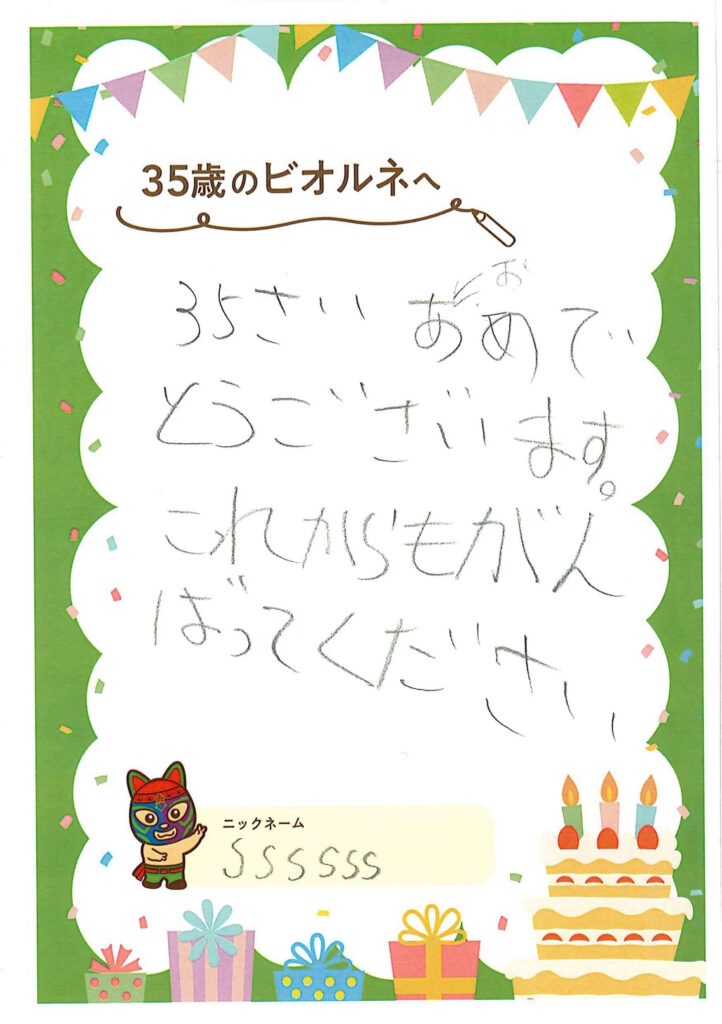 35歳のビオルネへ
お
35さい あめで
とうございます。
これからもがん
ばってください
ニックネーム
SSSSSSS